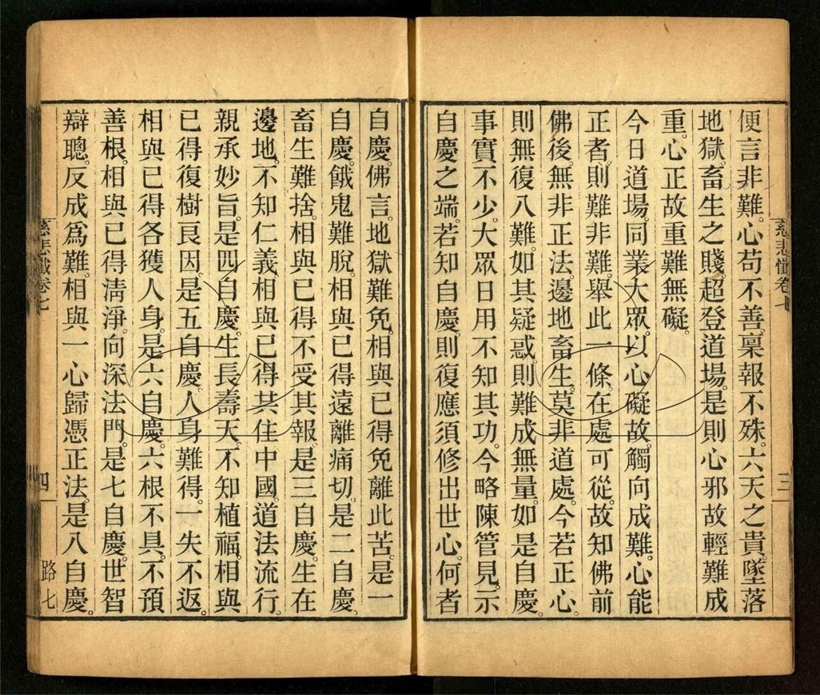 便言非難。心苟不善。稟報不殊。六天之貴。墜落
地獄。畜生之賤。超登道場。是則心邪故輕難成
重。心正故重難無礙。
今日道場。同業大眾。以心礙故。觸向成難。心能
正者。則難非難。舉此一條。在處可從。故知佛前
佛後無非正法。邊地畜生。莫非道處。今若正心。
則無復八難。如其疑惑則難成無量。如是自慶。
事實不少。大眾日用不知其功。今略陳管見。示
自慶之端。若知自慶則復應須修出世心。何者
慈悲懺卷七
三
自慶。佛言。地獄難免。相與已得免離此苦。是一
自慶。餓鬼難脫。相與已得遠離痛切。是二自慶。
畜生難捨。相與已得不受其報。是三自慶。生在
邊地。不知仁義。相與已得共住中國。道法流行。
親承妙旨。是四自慶。生長壽天。不知植福。相與
已得復樹良因。是五自慶。人身難得。一失不返。
相與已得各獲人身。是六自慶。六根不具。不預
善根。相與已得清淨。向深法門。是七自慶。世智
辯聰。反成為難。相與一心歸憑正法。是八自慶。
慈悲懺卷七
四
路七